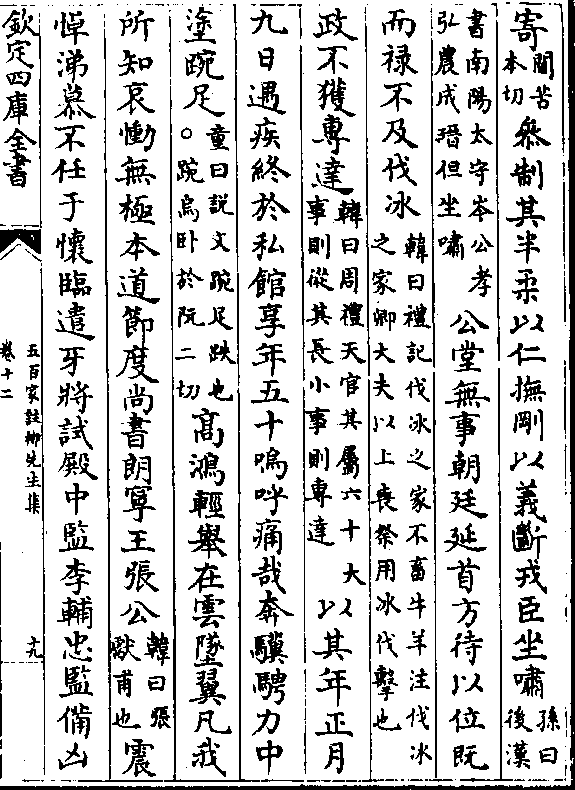 寄閫苦本切叅制其半柔以仁撫剛以義斷戎臣坐嘯孫曰後漢
書南陽太守岑公孝弘農成瑨但坐嘯公堂無事朝廷延首方待以位既
而禄不及伐冰韓曰禮記伐冰之家不畜牛羊注伐冰之家卿大夫以上喪祭用冰伐擊也
政不獲專達韓曰周禮天官其屬六十大事則從其長小事則專達以其年正月
九日遇疾終於私館享年五十嗚呼痛哉奔驥騁力中
塗踠足童曰説文踠足跌也○踠烏卧於阮二切高鴻輕舉在雲墜翼凡我
所知哀慟無極本道節度尚書朗寧王張公韓曰張獻甫也震
悼涕慕不任于懷臨遣牙將試殿中監李輔忠監備凶
欽定四庫全書
五百家註柳先生集
卷十二
十九